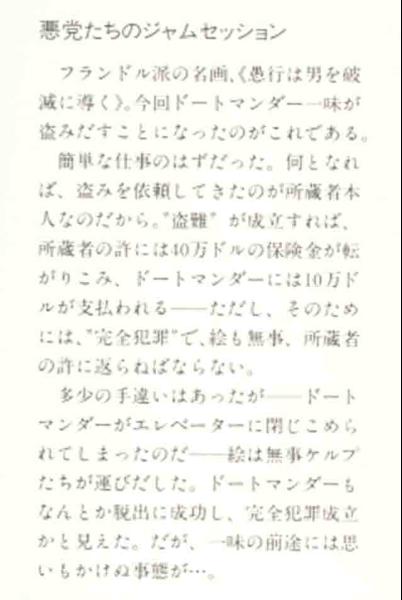 悪党たちのジャムセッション
フランドル派の名画、《愚行は男を破
滅に導く》。今回ドートマンダー一味が
盗みだすことになったのがこれである。
簡単な仕事のはずだった。何となれ
ば、盗みを依頼してきたのが所蔵者本
人なのだから。“盗難”が成立すれば、
所蔵者の許には40万ドルの保険金が転
がりこみ、ドートマンダーには10万ド
ルが支払われる——ただし、そのため
には、“完全犯罪”で、絵も無事、所蔵者
の許に返らねばならない。
多少の手違いはあったが——ドート
マンダーがエレベーターに閉じこめら
れてしまったのだ——絵は無事ケルプ
たちが運びだした。ドートマンダーも
なんとか脱出に成功し、完全犯罪成立
かと見えた。だが、一味の前途には思
いもかけぬ事態が…。